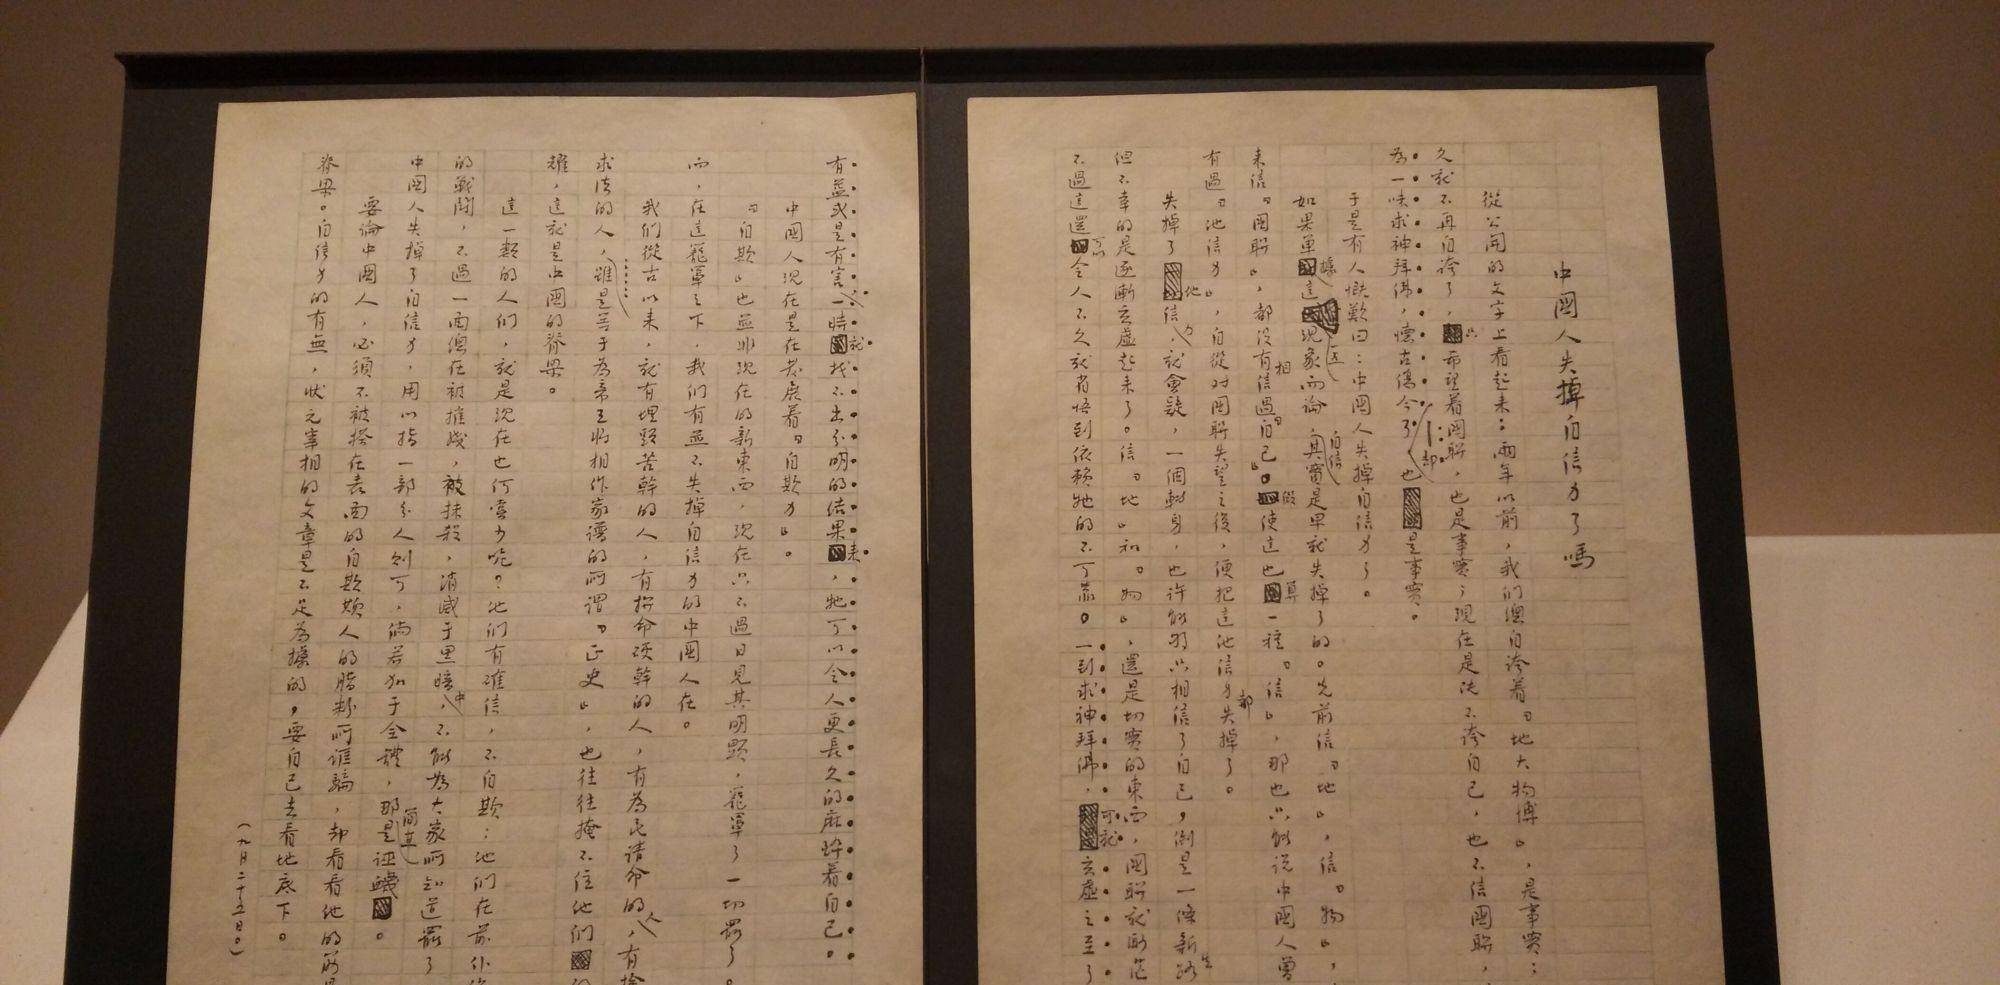 中國人失掉自信力了嗎
從公開的文字上看起來：兩年以前，我們總自誇着「地大物博」，是事實；
久就不再自誇了，只希望着國聯，也是事實；現在是既不誇自己，也不信國聯，
為一味求神拜佛，懷古傷今了，却也是事實。
于是有人慨歎曰：中國人失掉自信力了。
如果單據這一點現象而論，自信其實是早就失掉了的。先前信「地」，信「物」，
來信「國聯」，都沒有相信過「自己」。假使這也算一種「信」，那也只能說中國人曾
有過「他信力」，自從對國聯失望之後，便把這他信力都失掉了。
失掉了他信力，就會疑，一個轉身，也許能夠只相信了自己，倒是一條新生路
但不幸的是逐漸玄虛起來了。信「地」和「物」，還是切實的東西，國聯就渺茫
不過這還可以令人不久就省悟到依賴牠的不可靠。一到求神拜佛，可就玄虛之至了
有益或是有害，一時就找不出分明的結果來，牠可以令人更長久的麻醉着自己。
中國人現在是在發展着「自欺力」。
「自欺」也並非現在的新東西，現在只不過日見其明顯，籠罩了一切罷了。
而，在這籠罩之下，我們有並不失掉自信力的中國人在。
我們從古以來，就有埋頭苦幹的人，有拚命硬幹的人，有為民請命的人，有捨
求法的人，雖是等于為帝王將相作家譜的所謂「正史」，也往往掩不住他們的
耀，這就是中國的脊梁。
這一類的人們，就是現在也何嘗少呢？他們有確信，不自欺；他們在前仆後
的戰鬥，不過一面總在被摧殘，被抹殺，消滅于黑暗中，不能為大家所知道罷了
中國人失掉了自信力，用以指一部分人則可，倘若加于全體，那簡直是誣衊。
要論中國人，必須不被搽在表面的自欺欺人的脂粉所誆騙，却看看他的筋骨
脊梁。自信力的有無，狀元宰相的文章是不足為據的，要自己去看地底下。
（九月二十五日。）